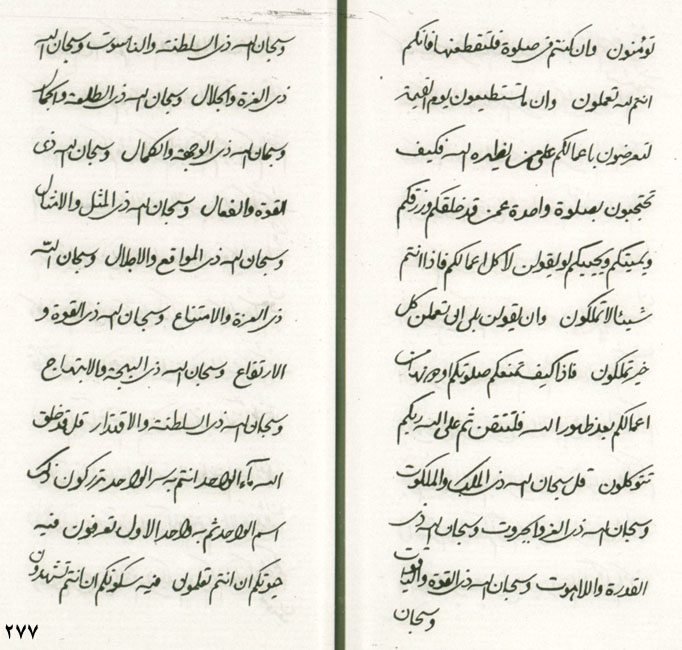 تؤمنون وان كنتم في صلوة فلتقطعنها فانكم
انتم لله تعملون وان ما تستطيعون يوم القيمة
لتعرضون باعمالكم على من يظهره الله فكيف
تحتجبون بصلوة واحدة عمن قد خلقكم ورزقكم
ويميتكم ويحييكم لو ليقولن لا كل اعمالكم فاذا انتم
شيئا لا تملكون وان ليقولن بلى الى تعملن كل
خير تملكون فاذا كيف تمنعكم صلوتكم او
اعمالكم بعد ظهور الله فلتتقن ثم على الله ربكم
تتوكلون قل سبحان الله ذي الملك والملكوت
وسبحان الله ذي العز والجبروت وسبحان الله ذي
القدرة واللاهوت وسبحان الله ذي القوة والياقوت
وسبحان
وسبحان الله ذي السلطنة والناسوت وسبحان الله
ذي العزة والجلال وسبحان الله ذي الطلعة والجمال
وسبحان الله ذي الوجهة والكمال وسبحان الله ذي
القوة والفعال وسبحان الله ذي المثل والامثال
وسبحان الله ذي المواقع والاجلال وسبحان الله
ذي العزة والامتناع وسبحان الله ذي القوة و
الارتفاع وسبحان الله ذي البهجة والابتهاج
وسبحان الله ذي السلطنة والاقتدار قل قد خلق
الله ماء الواحد انتم به سر الواحد تدركون ذلك
اسم الواحد ثم به واحد الاول تعرفون فيه
حيوتكم ان انتم تعلمون فيه سكونكم ان انتم تشهدون
٢٧٧